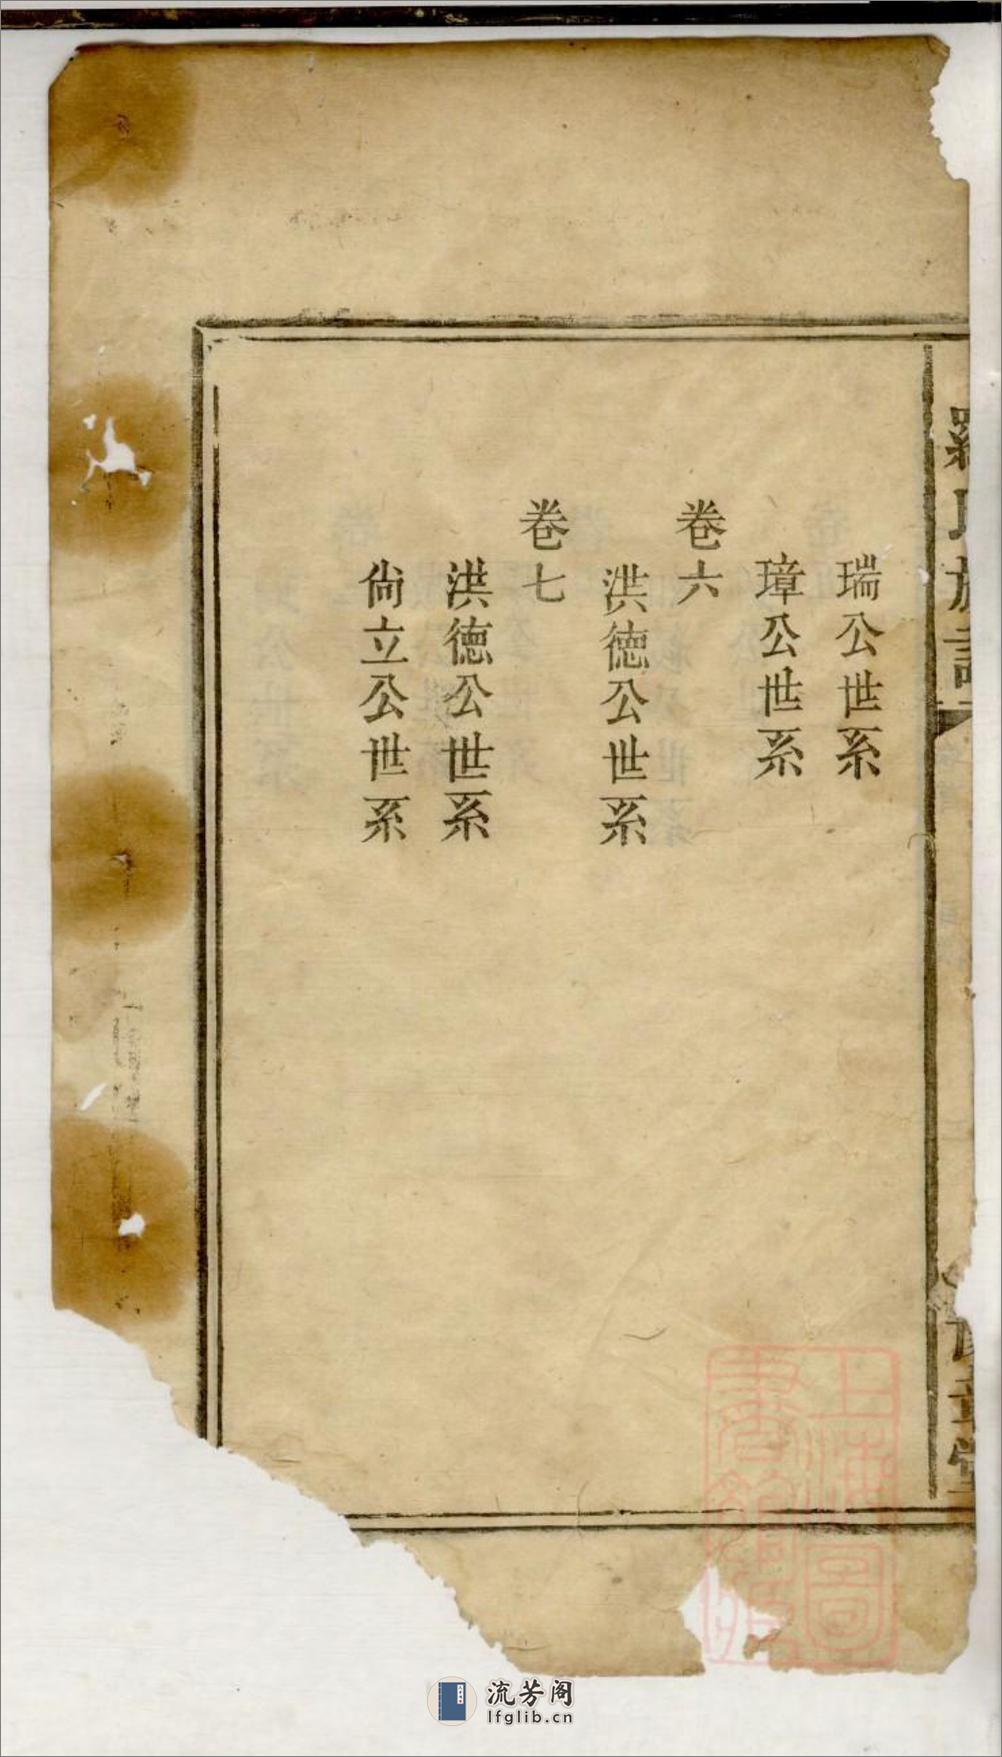 羅氏族譜
瑞公世系
璋公世系
卷六
洪德公世系
卷七
洪德公世系
尙立公世系
上海圖書館藏
流芳阁
lfglib.cn